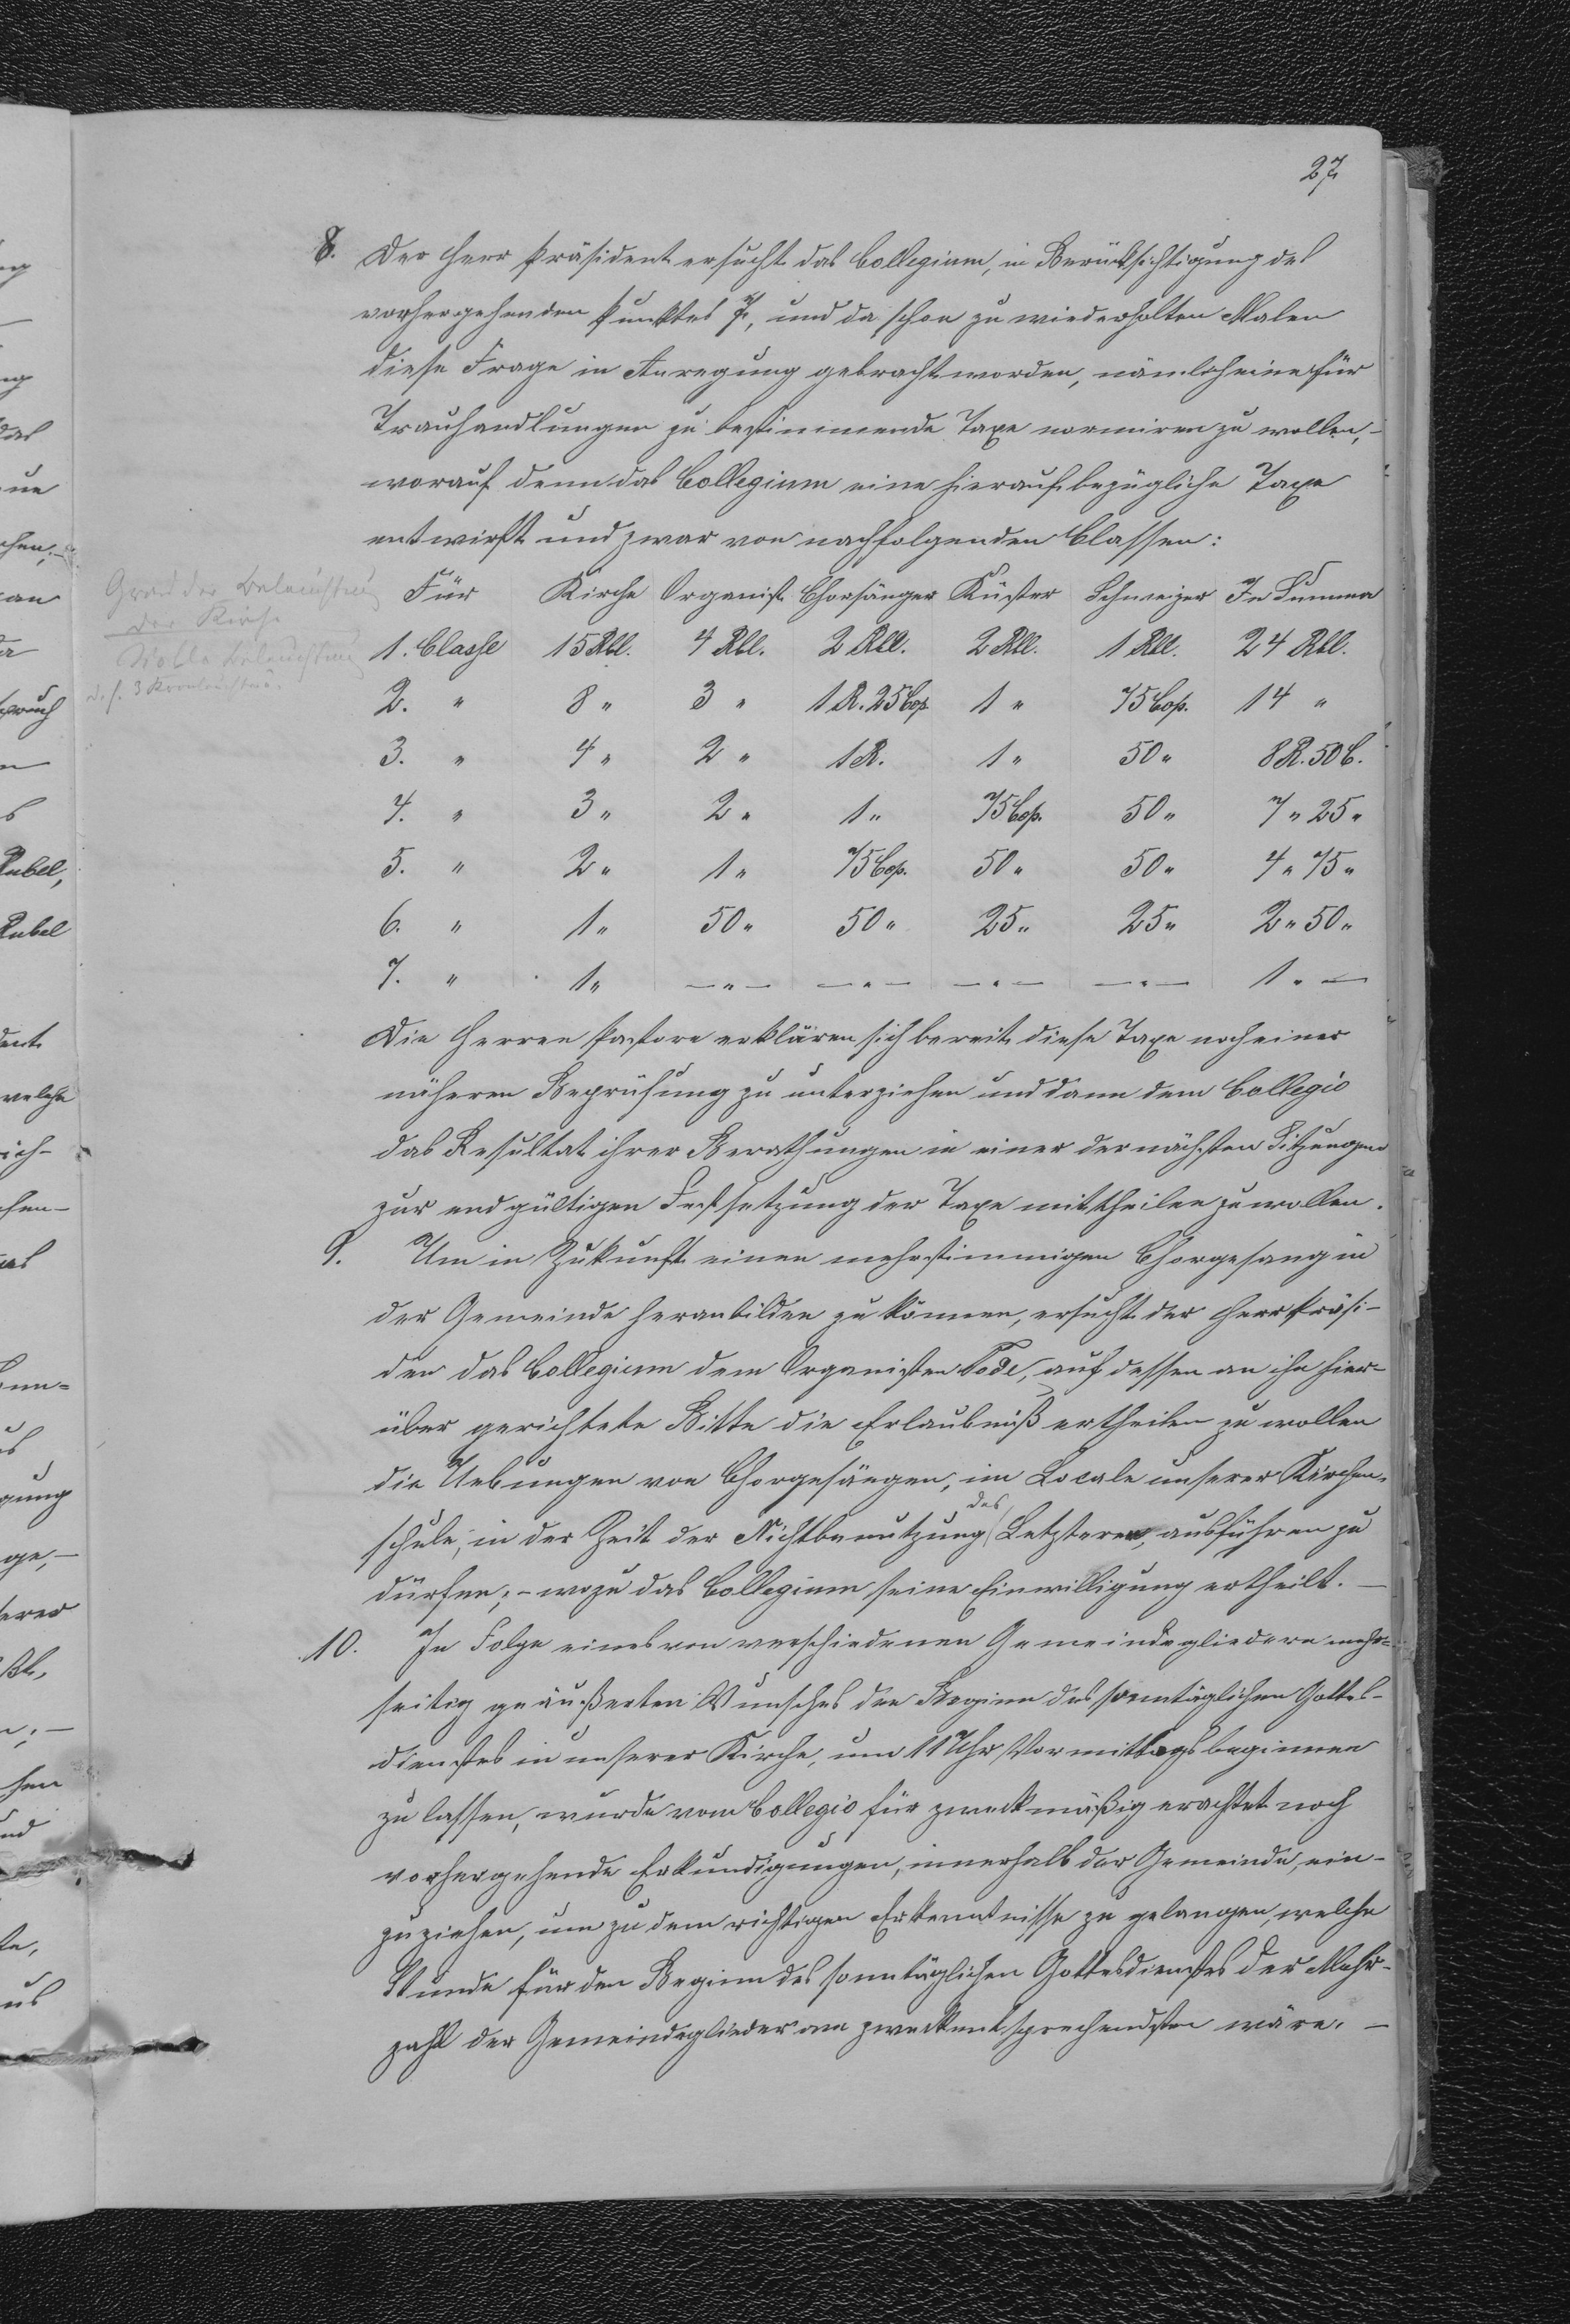 27
8. Der Herr Präsident ersucht das Collegium, in Berücksichtigung des
vorhergehenden Punktes 7, und da schon zu wiederholten Malen
diese Frage in Anregung gebracht worden, nämlich eine für
Trauhandlungen zu bestimmende Taxe normiren zu wollen, –
worauf denn das Collegium eine hierauf bezügliche Taxe
entwirft und zwar von nachfolgenden Classen:
Grad der Beleuchtung
der Kirche
Volle Beleuchtung
d. h. 3 Kronleuchter.
Für Kirche Organist Chorsänger Küster Schweizer In Summa
1. Classe 15 Rbl. 4 Rbl. 2 Rbl. 2 Rbl. 1 Rbl. 24 Rbl.
2. " 8 " 3 " 1 R. 25 Cop. 1 " 75 Cop. 14 "
3. " 4 " 2 " 1 R. 1 " 50 " 8 R. 50 C.
4. " 3 " 2 " 1 " 75 Cop. 50 " 7 " 25 "
5. " 2 " 1 " 75 Cop. 50 " 50 " 4 " 75 "
6. " 1 " 50 " 50 " 25 " 25 " 2 " 50 "
7. " 1 " — " — — " — — " — — " — 1 " —
Die Herren Pastore erklären sich bereit diese Taxe noch einer
näheren Beprüfung zu unterziehen und dann dem Collegio
das Resultat ihrer Berathungen in einer der nächsten Sitzungen
zur endgültigen Festsetzung der Taxe mittheilen zu wollen.
9. Um in Zukunft einen mehrstimmigen Chorgesang in
der Gemeinde heranbilden zu können, ersucht der Herr Präsi-
den das Collegium dem Organisten Tode, auf dessen an ihn hier-
über gerichtete Bitte die Erlaubniß ertheilen zu wollen
die Uebungen von Chorgesängen, im Locale unserer Kirchen-
schule, in der Zeit der Nichtbenutzung des Letzteren, ausführen zu
dürfen; – wozu das Collegium seine Einwilligung ertheilt. —
10. In Folge eines von verschiedenen Gemeindegliedern mehr-
seitig geäußerten Wunsches den Beginn des sonntäglichen Gottes-
dienstes in unserer Kirche, um 11 Uhr Vormittags beginnen
zu lassen, wurde vom Collegio für zweckmäßig erachtet noch
vorhergehende Erkundigungen, innerhalb der Gemeinde, ein-
zuziehen, um zu dem richtigen Erkenntnisse zu gelangen, welche
Stunde für den Beginn des sonntäglichen Gottesdienstes der Mehr-
zahl der Gemeindeglieder am zweckentsprechendsten wäre. —